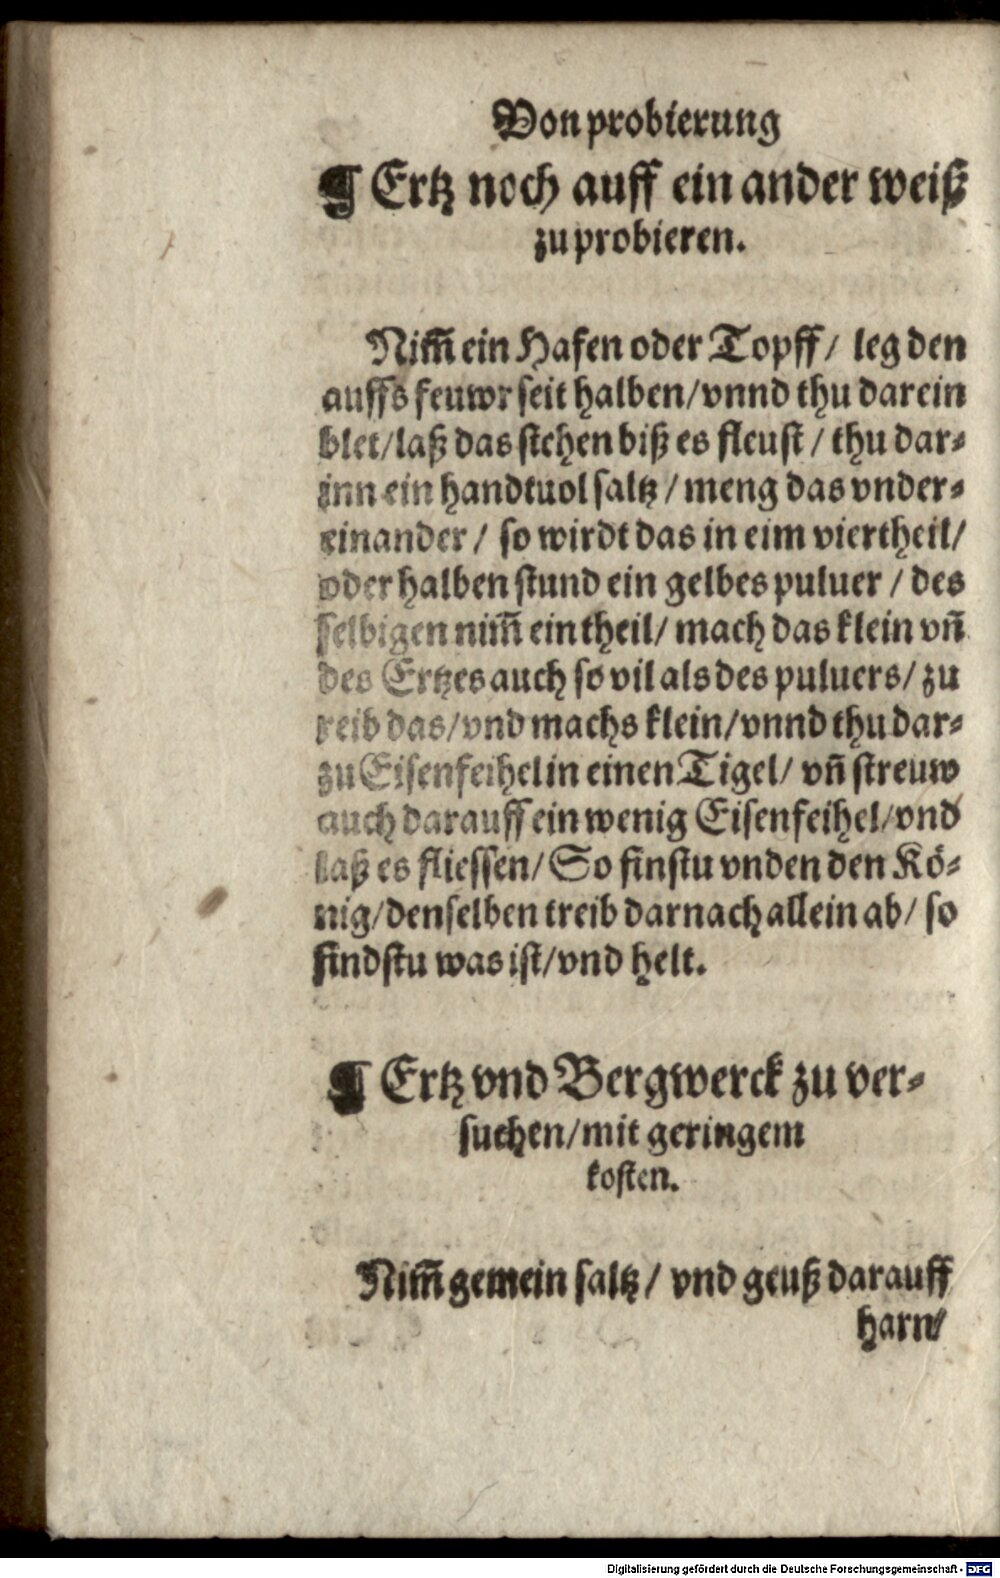 Von probierung
¶ Ertz noch auff ein ander weiß
zu probieren.
Nim̃ ein Hafen oder Topff / leg den
auffs feuwr seit halben / vnnd thu darein
blet / laß das stehen biß es fleust / thu dar⸗
inn ein handtuol saltz / meng das vnder⸗
einander / so wirdt das in eim viertheil /
oder halben stund ein gelbes puluer / des
selbigen nim̃ ein theil / mach das klein vñ
des Ertzes auch so vil als des puluers / zu
reib das / vnd machs klein / vnnd thu dar⸗
zu Eisenfeihel in einen Tigel / vñ streuw
auch darauff ein wenig Eisenfeihel / vnd
laß es fliessen / So finstu vnden den Kö⸗
nig / denselben treib darnach allein ab / so
findstu was ist / vnd helt.
¶ Ertz vnd Bergwerck zu ver⸗
suchen / mit geringem
kosten.
Nim̃ gemein saltz / vnd geuß darauff
harn /
Digitalisierung gefördert durch die Deutsche Forschungsgemeinschaft - DFG